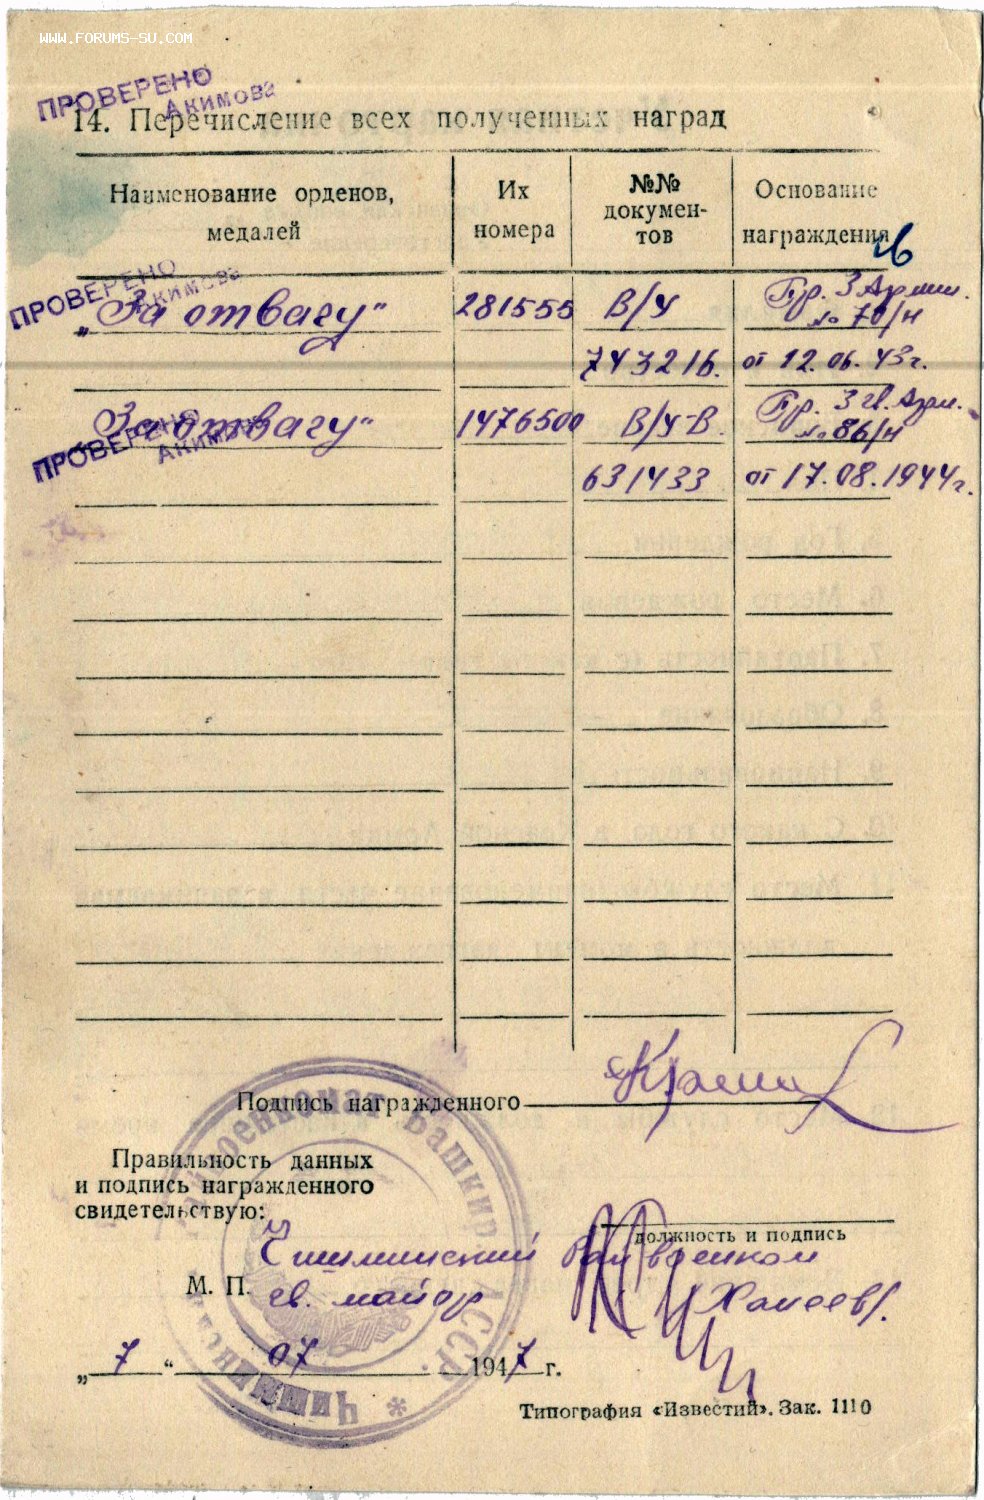 WWW.FORUMS-SU.COM
ПРОВЕРЕНО
Акимова
14. Перечисление всех полученных наград
Наименование орденов, медалей
Их номера
№№ документов
Основание награждения
ПРОВЕРЕНО
Акимова
„За отвагу“ 281555 В/У Пр. 3 Армии.
№ 70/н
743216. от 12.06.43г.
„За отвагу“ 1476500 В/У-В Пр. 3 гв. Арм.
№ 86/н
ПРОВЕРЕНО
Акимова
631433 от 17.08.1944г.
Подпись награжденного
Правильность данных
и подпись награжденного
свидетельствую:
должность и подпись
Чишминский Райвоенком
М. П. гв. майор
„ 7 “ 07 1947 г.
Райвоенкомат Башкир АССР * Чишминский
Типография «Известий». Зак. 1110